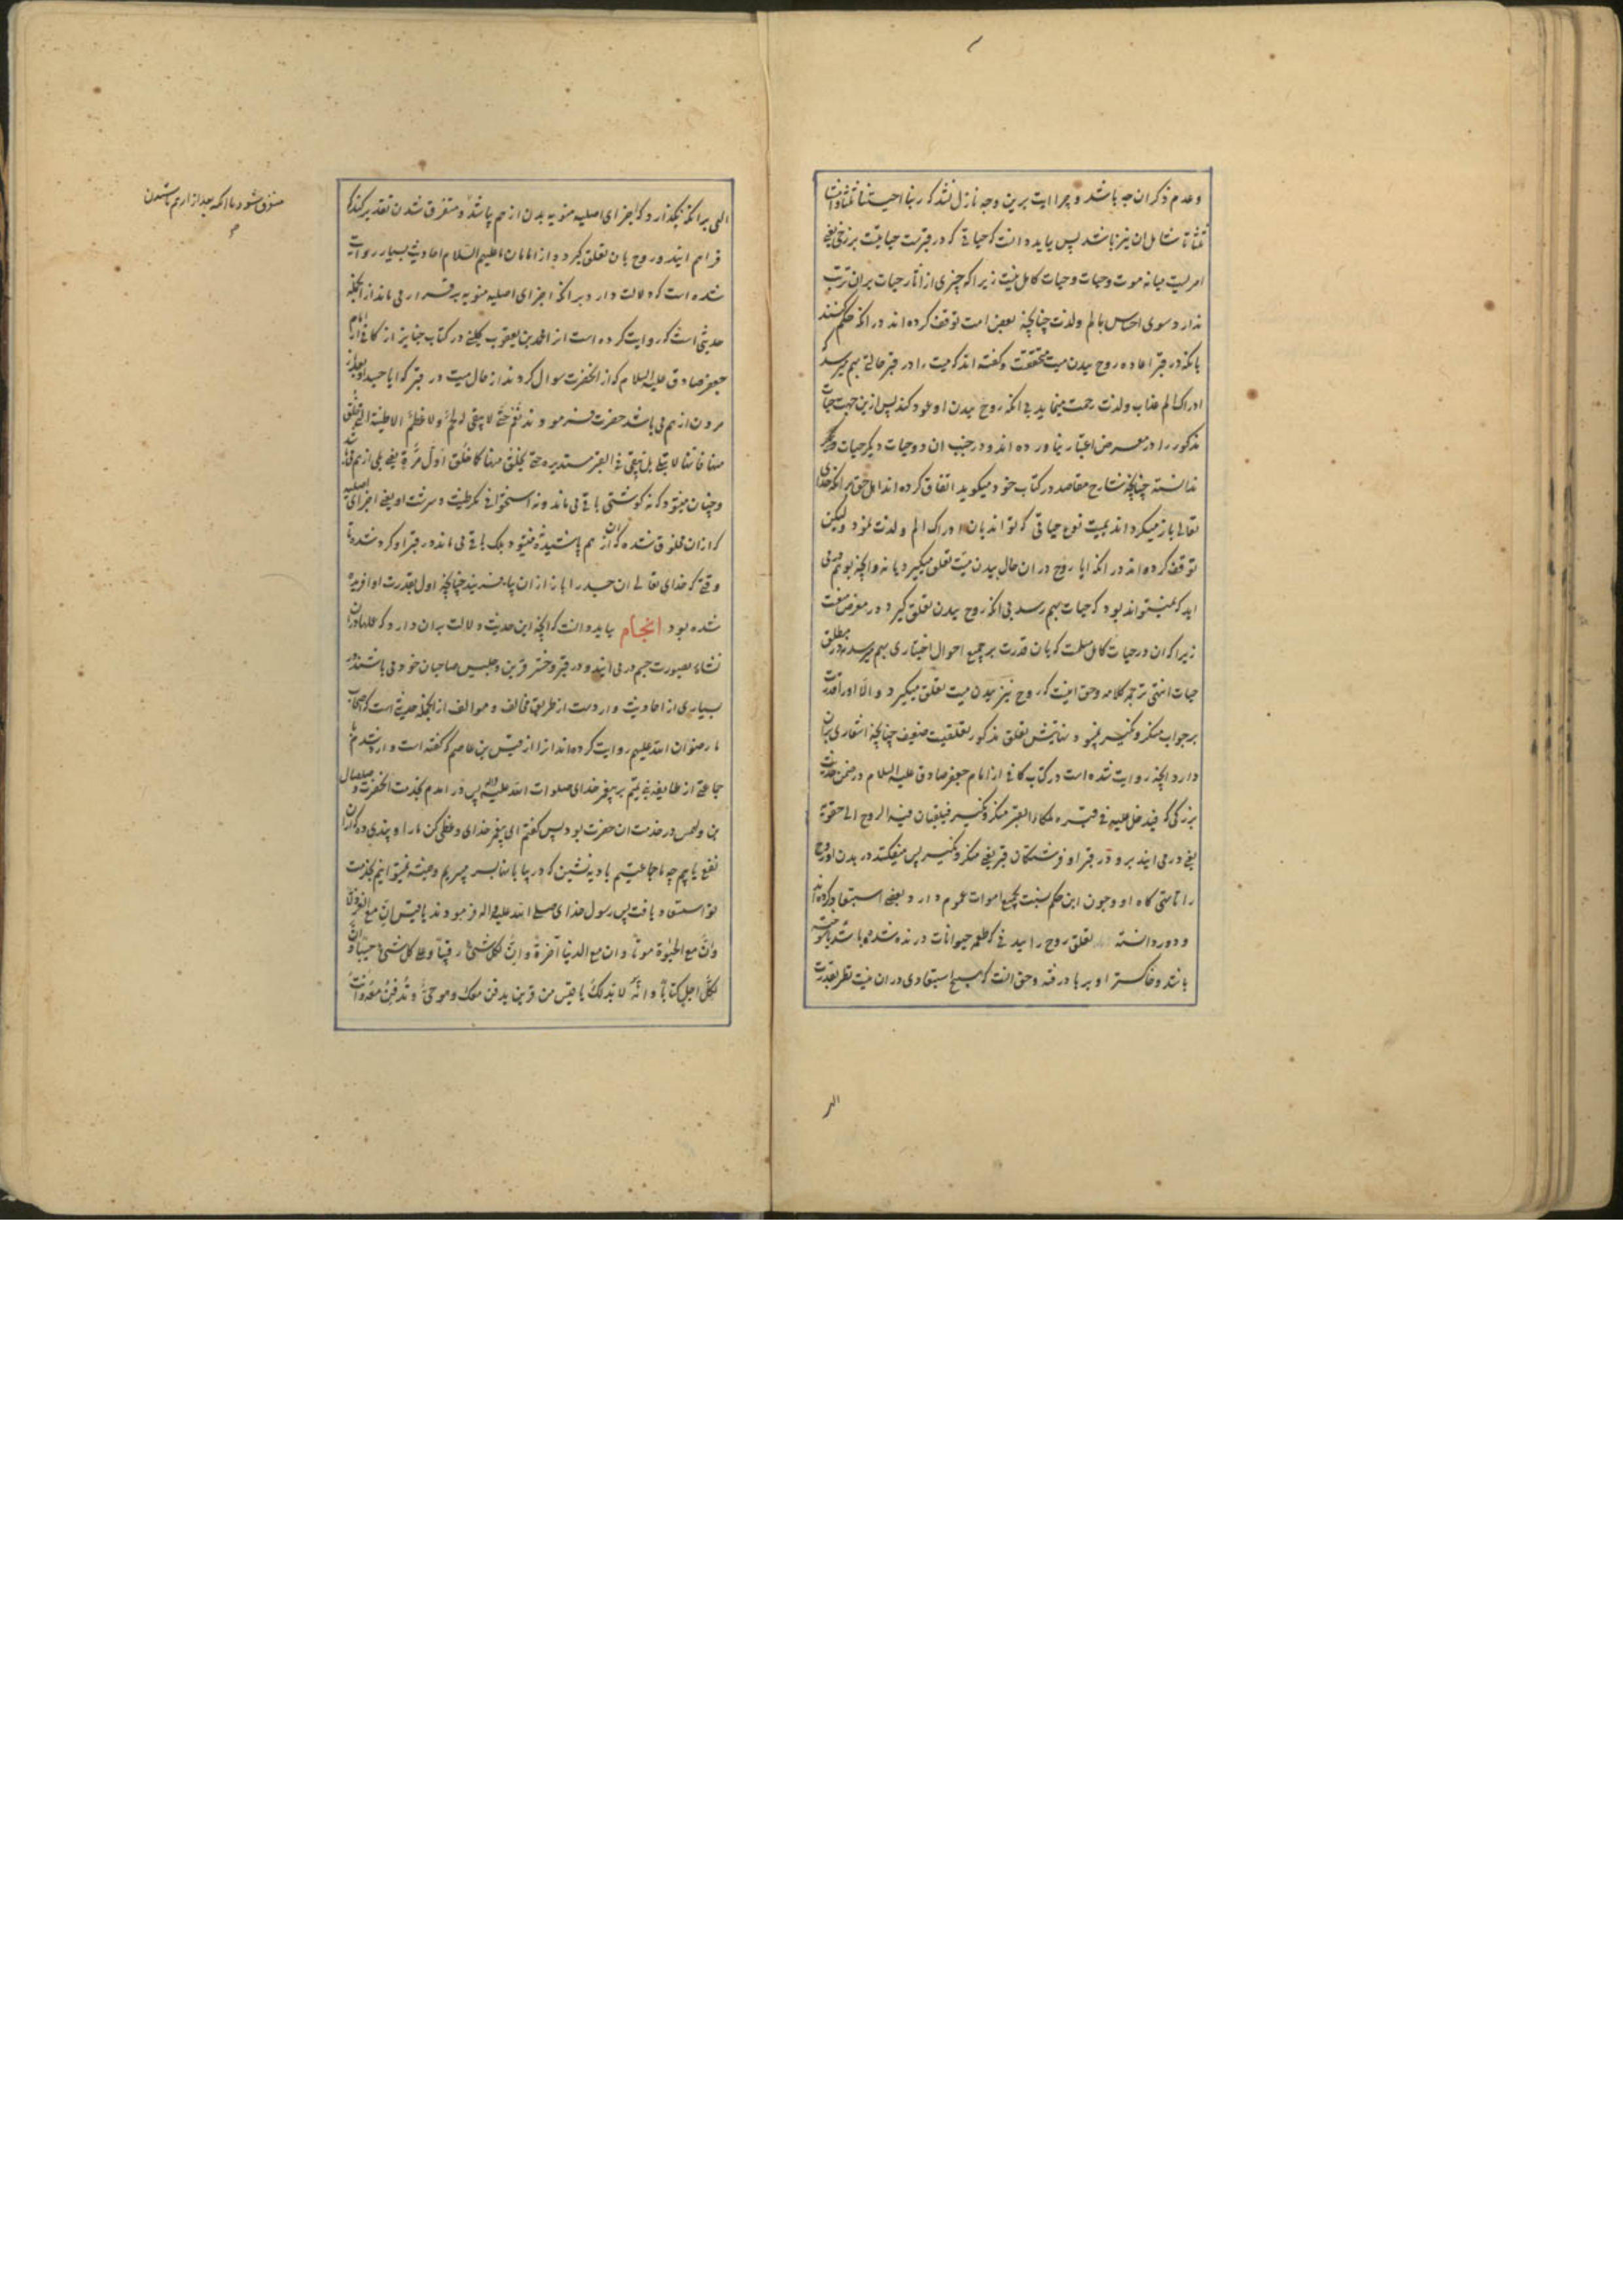 وعدم ذکر ان چه باشد و چرا ایت برین وجه نازل نشد که ربنا احییتنا ثلثا و امتنا
ثلثا تا شامل ان نیز باشد پس باید دانست که حیاتی که در قبرست حیاتیت برزخی یعنی
امریست میانه موت و حیات و حیات کامل نیست زیرا که چیزی از اثار حیات بران ترتب
ندارد سوی احساس بالم ولذت چنانچه بعض امت توقف کرده اند در انکه حکم کنند
بانکه در قبر اعاده روح ببدن میت متحققست و گفته اند که میت را در قبر حالتی بهم میرسد که
ادراک الم عذاب ولذت رحمت مینماید بی انکه روح ببدن او عود کند پس ازین جهت حیات
مذکور را در معرض اعتبار نیاورده اند و در جنب ان دو حیات دیگر حیات دیگر
ندانسته چنانچه شارح مقاصد در کتاب خود میکوید اتفاق کرده اند اهل حق برانکه خدای
تعالی باز میکرداند بمیت نوع حیاتی که تواند بان ادراک الم ولذت نمود ولیکن
توقف کرده اند در انکه ایا روح در ان حال ببدن میت تعلق میکیرد یا نه وانچه بوهم می
اید که نمیتواند بود که حیات بهم رسد بی انکه روح ببدن تعلق کیرد در معرض منعست
زیرا که ان در حیات کامل مسلمست که بان قدرت بر جمیع احوال اختیاری بهم میرسد نه در مطلق
حیات انتهی ترجمه کلامه وحق اینست که روح نیز ببدن میت تعلق میکیرد والا اورا قدرت
بر جواب منکر ونکیر نمیبود نهایتش تعلق مذکور تعلقیست ضعیف چنانچه اشعاری بران
دارد انچه روایت شده است در کتاب کافی از امام جعفر صادق علیه السلام در ضمن حدیث
بزرکی که فیدخل علیه فی قبره ملکا القبر منکر ونکیر فیلقیان فیه الروح الی حقویه
یعنی در می ایند برو در قبر او فرشتکان قبر یعنی منکر ونکیر پس میفکنند در بدن او روح
را تا تهی کاه او وچون این حکم نسبت بجمیع اموات عموم دارد بعضی استبعاد کرده اند
و دور دانسته تعلق روح را ببدنی که طعمه حیوانات درنده شده باشد یا سوخته
باشند وخاکستر او بر باد رفته وحق انست که هیچ استبعادی در ان نیست نظر بقدرت
الهی
الهی برانکه نکذارد که اجزای اصلیه منویه بدن از هم پاشد و متفرق شدن تقدیر کند که
فراهم ایند و روح بان تعلق کیرد و از امامان علیهم السلام احادیث بسیار روایت
شده است که دلالت دارد برانکه اجزای اصلیه منویه برقرار می ماند از انجمله
حدیثی است که روایت کرده است از محمد بن یعقوب کلینی در کتاب جنایز از کافی از امام
جعفر صادق علیه السلام که از انحضرت سوال کردند از حال میت در قبر که ایا جسد او بعد از
مردن از هم می پاشد حضرت فرمودند نعم حتی لا یبقی له لحم ولا عظم الا طینته التی خلق
منها فانها لا تبلی بل تبقی فی القبر مستدیرة حتی یخلق منها کما خلق اول مرة یعنی بلی از هم می پاشد
و چنان میشود که نه کوشتی باقی می ماند ونه استخوانی مکر طینت و سرشت او یعنی اجزای اصلیه
که ازان مخلوق شده که ان از هم پاشیده نمیشود بلکه باقی می ماند در قبر او کرد شده تا
وقتی که خدای تعالی ان جسد را باز ازان بیافریند چنانچه اول بقدرت او افریده
شده بود انجام باید دانست که انچه این حدیث دلالت بران دارد که عملها دران
نشاء بصورت جسم در می ایند و در قبر وحشر قرین وجلیس صاحبان خود می باشند در
بسیاری از احادیث وارد ست از طریق مخالف و موالف از انجمله حدیثی است که اصحاب
ما رضوان الله علیهم روایت کرده اند انرا از قیس بن عاصم که گفته است وارد شدم با
جماعتی از طایفه بنی تمیم بر پیغمبر خدای صلوات الله علیه واله پس در امدم بخدمت انحضرت و صلصال
بن دلهمس در خدمت ان حضرت بود پس کفتم ای پیغمبر خدای وعظی کن ما را و پندی ده که ازان
نفع یابیم چه ما جماعتیم بادیه نشین که در بیابانها بسر میبریم وهمیشه نمیتوانیم بخدمت
تو استسعاد یافت پس رسول خدای صلی الله علیه واله فرمودند یا قیس ان مع العز ذلا
وان مع الحیوة موتا وان مع الدنیا اخرة وان لکل شیء رقیبا وعلی کل شیء حسیبا وان
لکل اجل کتابا وانه لا بد لک یا قیس من قرین یدفن معک وهو حی وتدفن معه وانت
متفرق شود یا انکه بعد از از هم پاشیدن